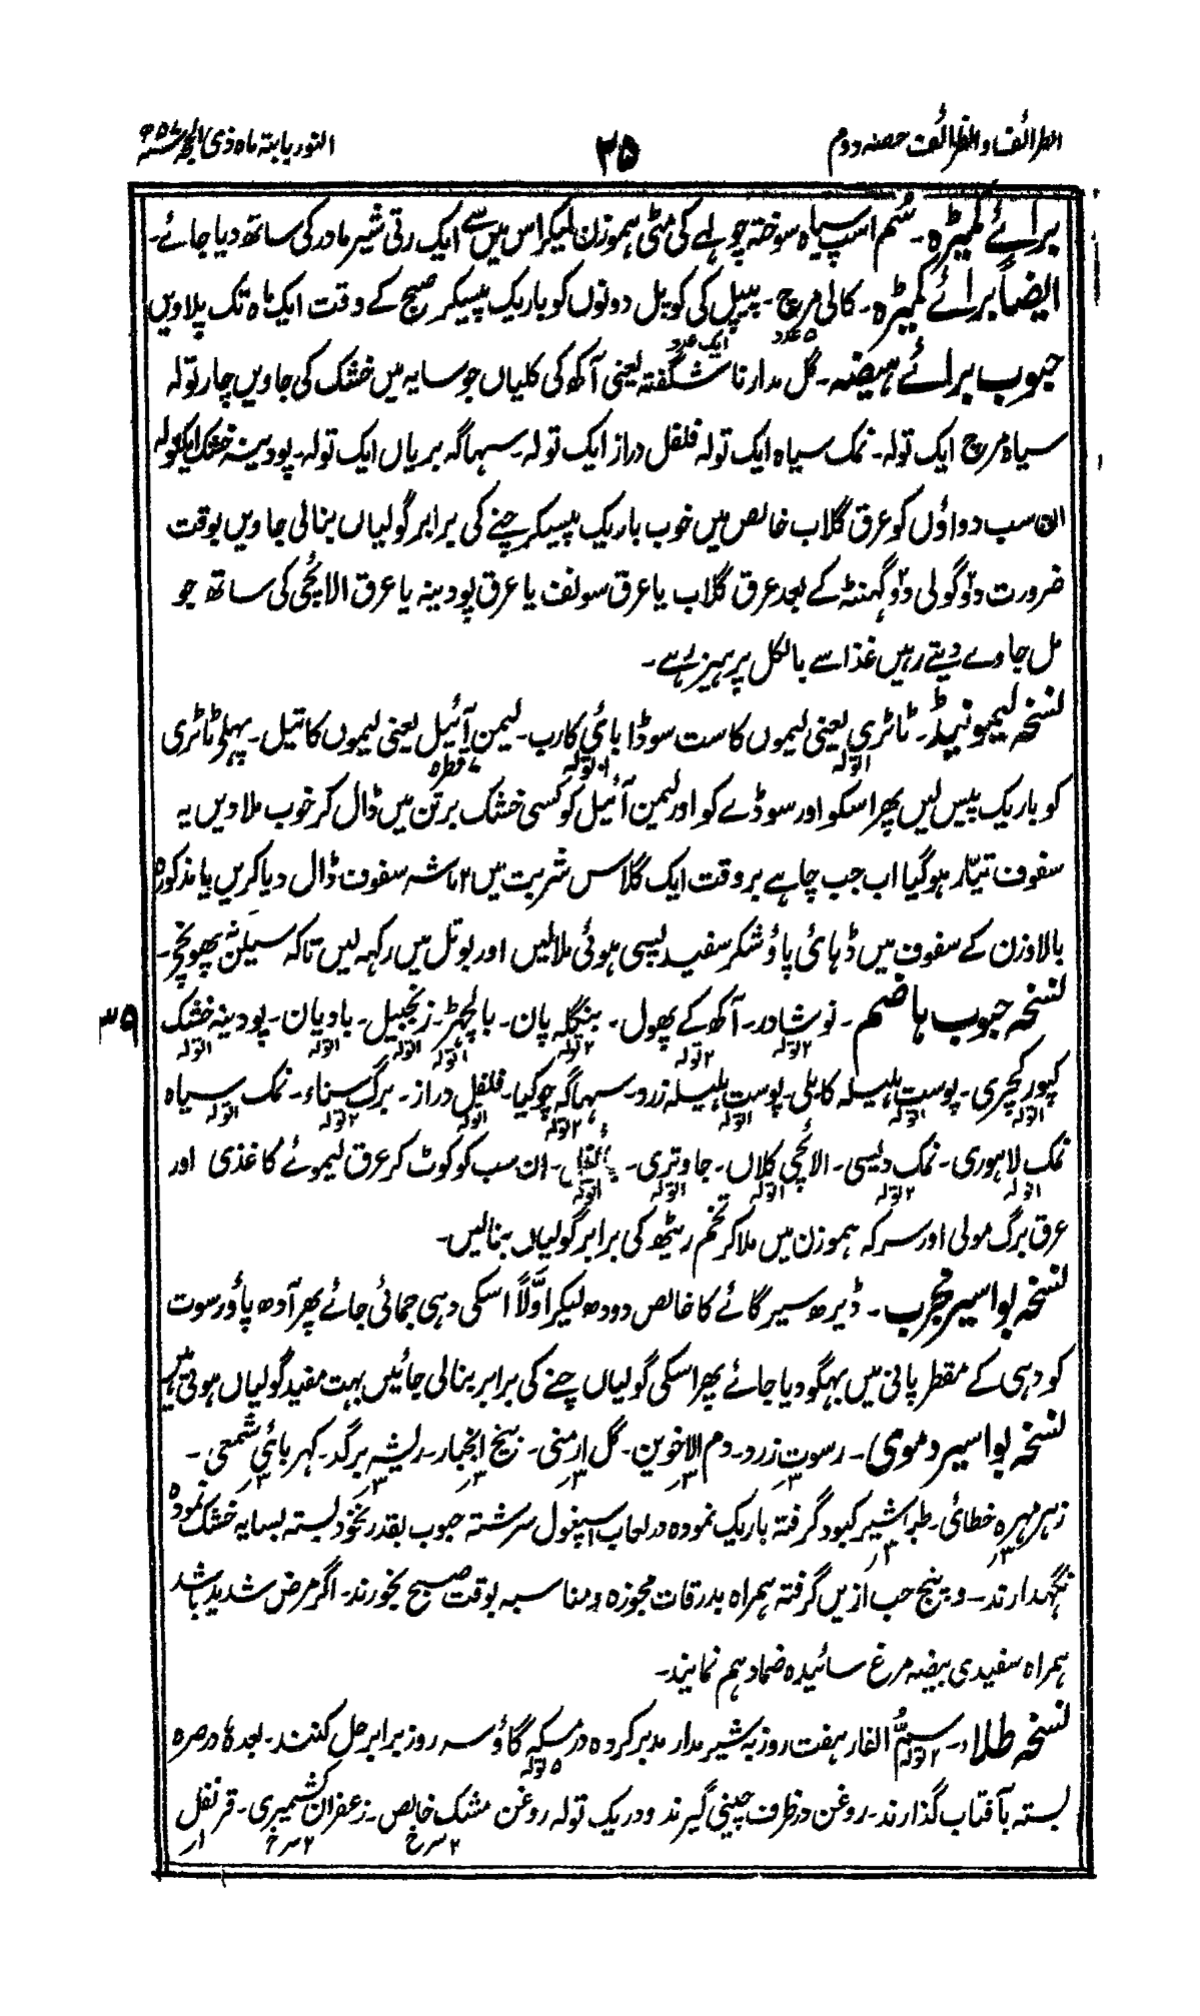 الطرائف والظرائف حصہ دوم
۳۵
النور بابتہ ماہ ذی الحجہ
برائے کمیڑہ۔ سُم اسپ سیاہ سوختہ چولہے کی مٹی ہموزن لیکر اس میں سے ایک رتی شیر مادر کی ساتھ دیا جائے۔
ایضاً برائے کمیڑہ۔ کالی مرچ۔ پیپل کی کوپل دونوں کو باریک پیسکر صبح کے وقت ایک ماہ تک پلاویں
۵ عدد ایک عدد
حبوب برائے ہیضہ۔ گل مدار ناشگفتہ یعنی آکھ کی کلیاں جو سایہ میں خشک کی جاویں چار تولہ
سیاہ مرچ ایک تولہ۔ نمک سیاہ ایک تولہ فلفل دراز ایک تولہ۔ سہاگہ بریاں ایک تولہ۔ پودینہ خشک ایکتولہ
ان سب دواؤں کو عرق گلاب خالص میں خوب باریک پیسکر چنے کی برابر گولیاں بنالی جاویں بوقت
ضرورت دو گولی دو گہنٹہ کے بعد عرق گلاب یا عرق سونف یا عرق پودینہ یا عرق الائچی کی ساتھ جو
مل جاوے دیتے رہیں غذا سے بالکل پرہیز رہے۔
نسخہ لیمونیڈ۔ ٹاٹری یعنی لیموں کا ست سوڈا بائی کارب۔ لیمن آئیل یعنی لیموں کا تیل۔ پہلے ٹاٹری
۱تولہ ۱۰تولہ ۷ قطرہ
کو باریک پیس لیں پھر اسکو اور سوڈے کو اور لیمن آئیل کو کسی خشک برتن میں ڈال کر خوب ملا دیں یہ
سفوف تیّار ہوگیا اب جب چاہے ہر وقت ایک گلاس شربت میں ۲ ماشہ سفوف ڈال دیا کریں یا مذکورہ
بالا وزن کے سفوف میں ڈہائی پاؤ شکر سفید پسی ہوئی ملالیں اور بوتل میں رکہہ لیں تاکہ سیلن نہ پھونچے۔
نسخہ حبوب ہاضم۔ نوشادر۔ آکھ کے پھول۔ بنگلہ پان۔ بالچھڑ۔ زنجبیل۔ بادیان۔ پودینہ خشک
۲تولہ ۲تولہ ۲تولہ ۱تولہ ۱تولہ ۱تولہ ۱تولہ
۳۹
کپور کچری۔ پوست ہلیلہ کابلی۔ پوست ہلیلہ زرد۔ سہاگہ چوکیا۔ فلفل دراز۔ برگ سناء۔ نمک سیاہ
۱تولہ ۱تولہ ۱تولہ ۲تولہ ۱تولہ ۲تولہ ۱تولہ
نمک لاہوری۔ نمک دلیسی۔ الائچی کلاں۔ جاوتری۔ ان سب کو کوٹ کر عرق لیموئے کاغذی اور
۱تولہ ۲تولہ ۱تولہ ۱تولہ ۱تولہ
عرق برگ مولی اور سرکہ ہموزن میں ملا کر تخم ریٹھ کی برابر گولیاں بنالیں۔
نسخہ بواسیر مجرب۔ ڈیرھ سیر گائے کا خالص دودھ لیکر اوّلاً اسکی دہی جمائی جائے پھر آدھ پاؤ رسوت
کو دہی کے مقطر پانی میں بہگو دیا جائے پھر اسکی گولیاں چنے کی برابر بنالی جائیں بہت مفید گولیاں ہوتی ہیں
نسخہ بواسیر دموی)۔ رسوت زرد۔ دم الاخوین۔ گل ارمنی۔ بیخ انجبار۔ ریشہ برگد۔ کہربائی شمعی۔
۳ ۳ ۳ ۳ ۳ ۳
زہر مہرہ خطائی۔ طباشیر کبود گرفتہ باریک نمودہ در لعاب اسپغول سرشتہ حبوب بقدر نخود بستہ بسایہ خشک نمودہ
۳ ۳
نگہدارند۔ و پنج حب ازیں گرفتہ ہمراہ بدرقات مجوزہ و مناسبہ بوقت صبح بخورند۔ اگر مرض شدید باشد
ہمراہ سفیدی بیضہ مرغ سائیدہ ضماد ہم نمایند۔
نسخہ طلاء۔ سم الفار ہفت روز بہ شیر مدار مدبر کردہ در مسکہ گاؤ سہ روز برابر حل کنند۔ بعدہٗ در صرہ
۲تولہ ۵تولہ
بستہ بآفتاب گذارند۔ روغن در ظرف چینی گیرند و در یک تولہ روغن مشک خالص۔ زعفران کشمیری۔ قرنفل
۲سرخ ۲سرخ ۱